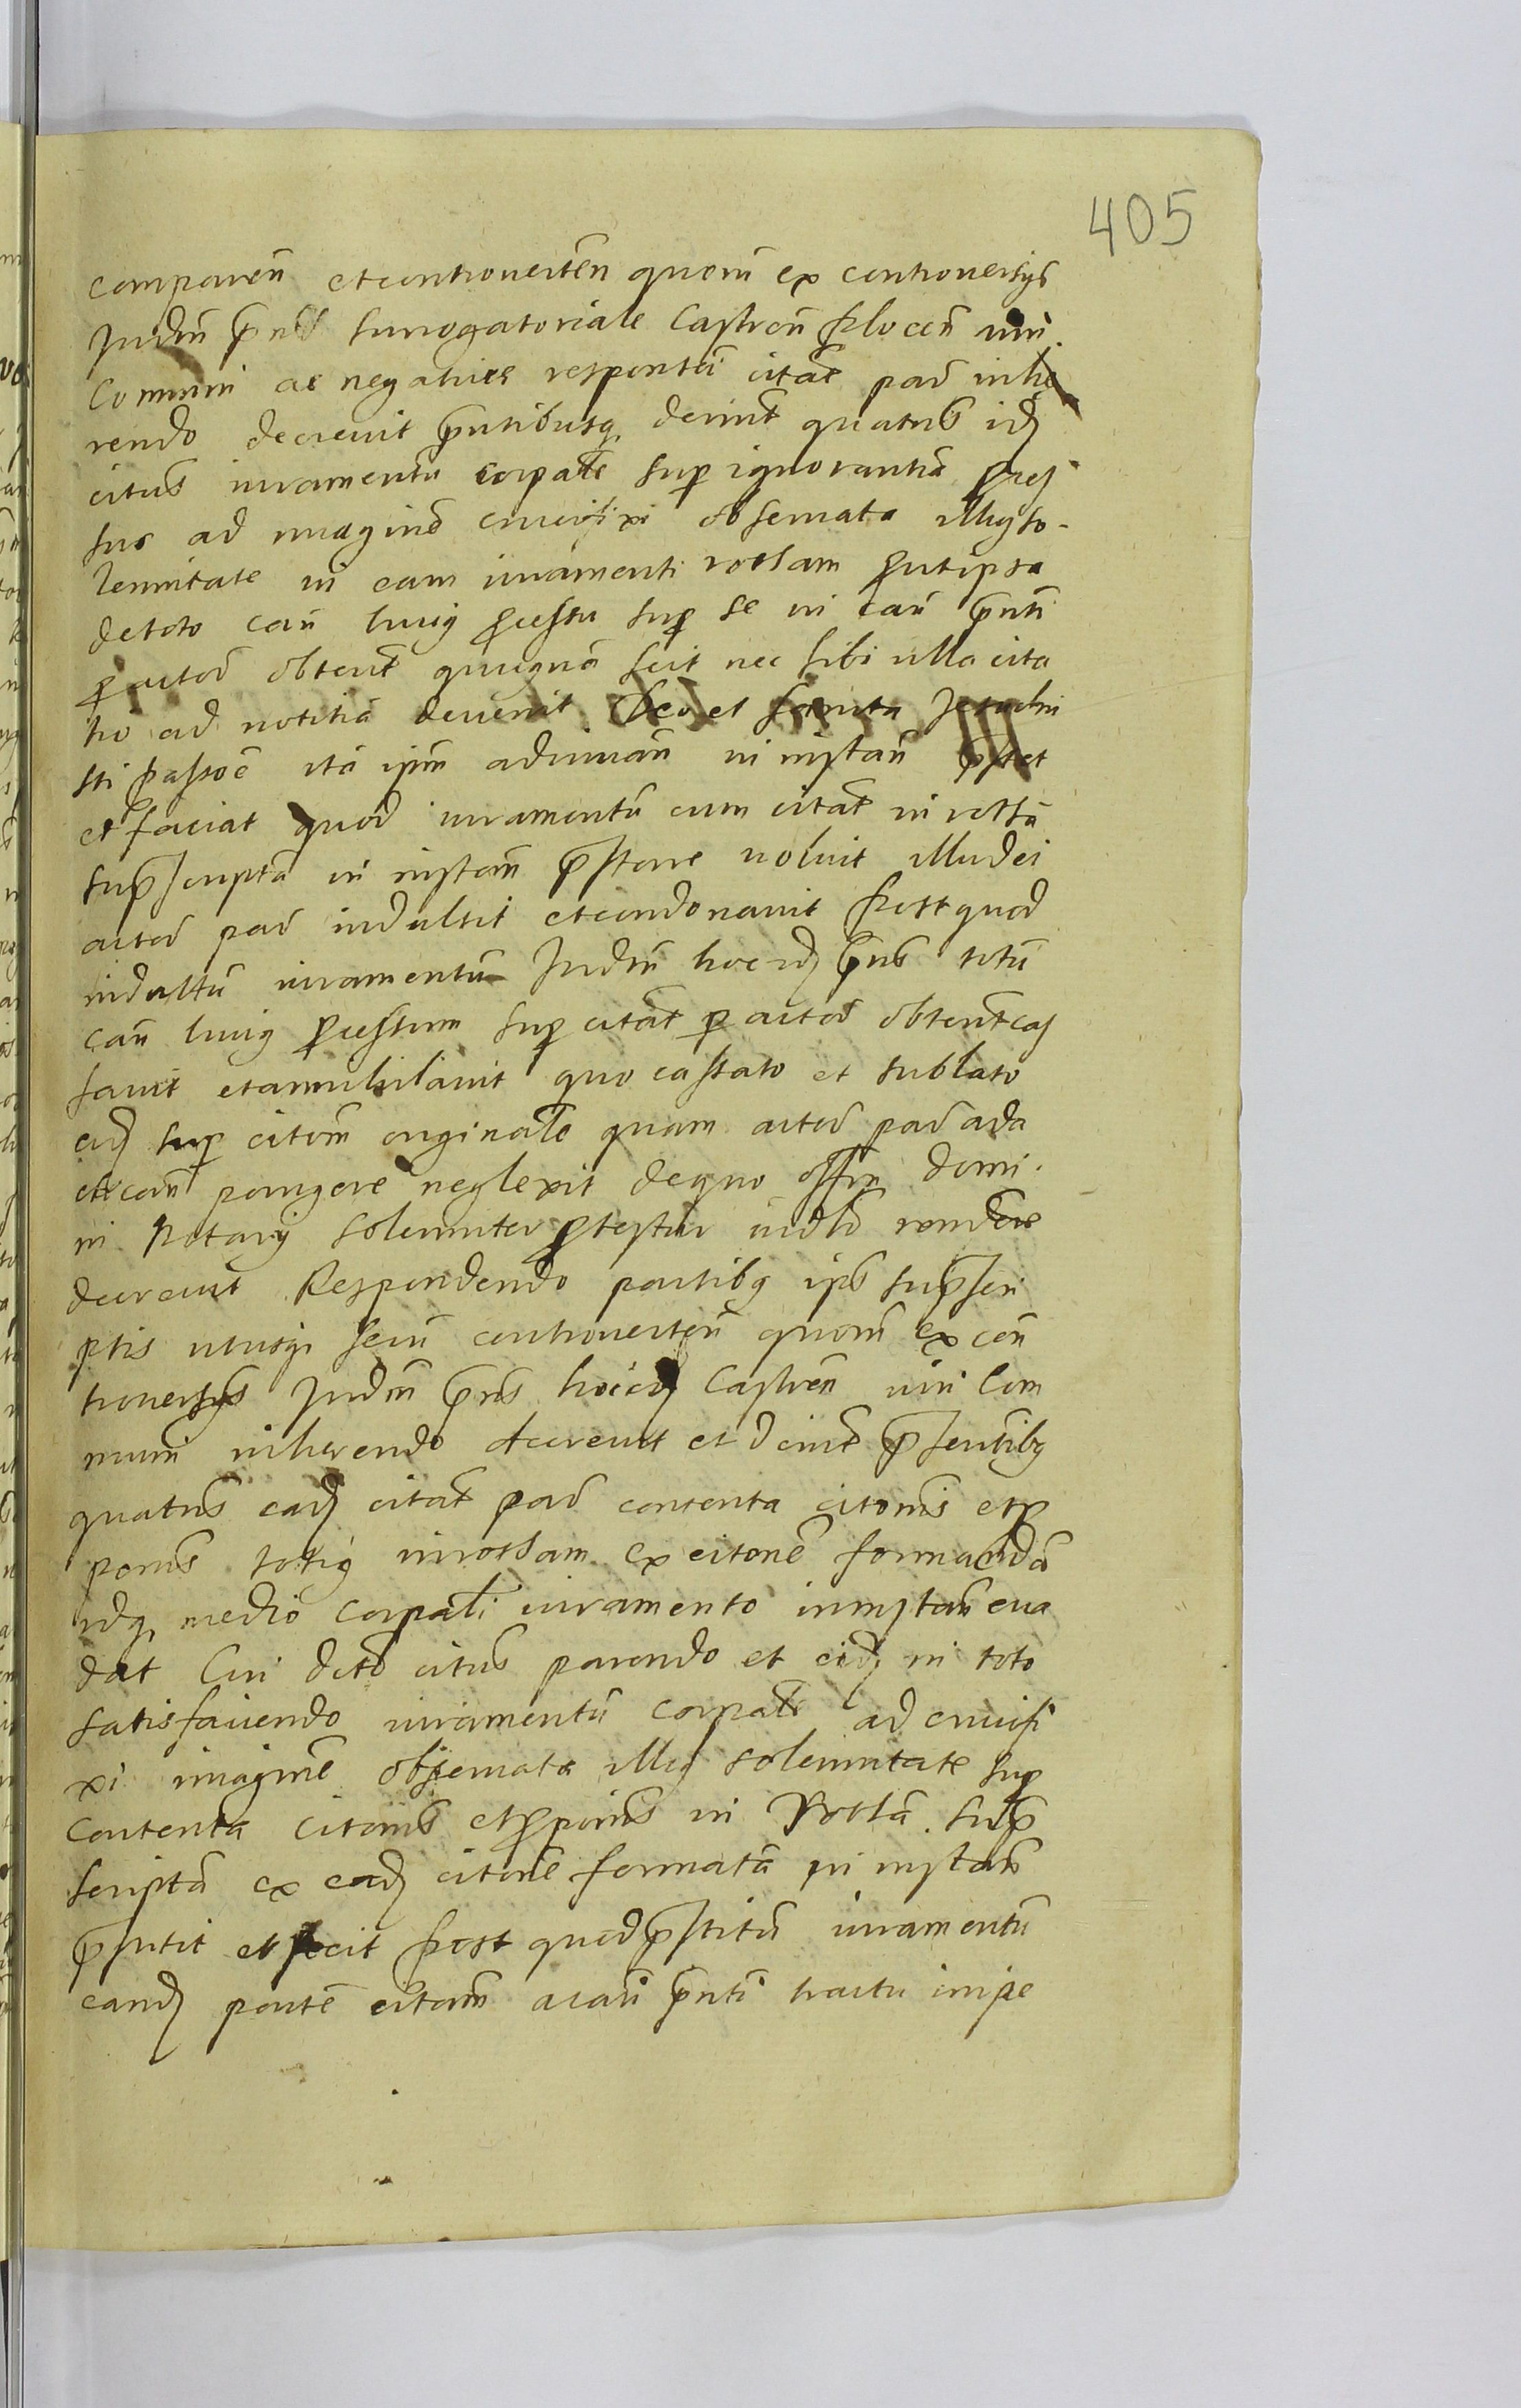 405
comparen̄ et controverten̄ quoru̅ ex controversijs
Judiu̅ p̄ns surrogatoriale Castren̄ Plocen̄ iuri
Communi ac negative responten̄ citat̅ par̅ inhe
rendo decrevit p̄ntibusq̨ decrevit quatenus idẽ
citus iuramentu̅ corpale sup ignorantia̅
suo ad imagine̅ crucifixi observata illius so-
lennitate in eam iuramenti rotham p̱ut ipse
de toto cau̅ huius p̱cessu sup se in cau̅ p̄nti
p̱ actore̅ obtent̅ quicqua̅ scit nec sibi ulla cita
tio ad notitia̅ devenit Deo et Jesuchri
sti passioe̅ ita ipm̅ adiuvan̄ in instan̄ p̄stet
et faciat quod iuramentu̅ cum citat̅ in rotha̅
sup̄scripta̅ in instan̄ p̄stare voluit illud ei
actor̅ par̅ indulsit et condonavit Post quod
indultu̅ iuramentu̅ Judiu̅ hoc idẽ p̄ns totu̅
cau̅ huius p̱cessum sup citat̅ p̱ actore̅ obtent̅ cas
savit et annihilavit quo cassato et sublato
eidẽ sup citom̅ originale̅ quam actor̅ par̅ ad a
cta cau̅ porrigere neglexit de quo offm̅ domi-
ni Notarij solenniter p̱testatur rendere
decrevit Respondendo partibus ipsis sup̄scri
ptis utrisq̨ secu̅ controverten̄ quoru̅ ex con
troversijs Judiu̅ p̄ns hoc idẽ Castren̄ iuri Com
muni inherendo decrevit et p̄sentibus
quatenus eadẽ citat̅ par̅ contenta citonis et p̱
ponis totius in rotham ex citone̅ formanda̅
idq̨ medio corpali iuramento in instan̄ eva
dat Cui dcto̅ citus parendo et eidẽ in toto
satisfaciendo iuramentu̅ corpale ad crucifi
xi imagine̅ observata illius solennitate sup
contenta citonis et p̱ponis in Rotha̅ sup̄
scripta̅ ex eadẽ citone̅ formata̅ in instan̄
p̄stitit et fecit Post quod p̄stitu̅ iuramentu̅
eandẽ parte̅ citam̅ a cau̅ p̄nti tractu impe